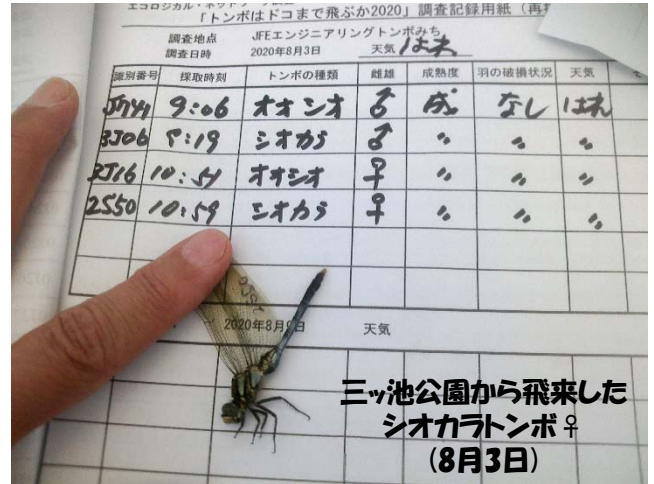 「トンボはドコまで飛ぶか2020」調査記録用紙（再
調査地点 JFEエンジニアリングトンボみち
調査日時 2020年8月3日 天気 はれ
識別番号 採取時刻 トンボの種類 雌雄 成熟度 羽の破損状況 天気
9:06 オオシオ ♂ 成 なし はれ
3J06 9:19 シオカラ ♂ 〃 〃 〃
3J16 10:51 オオシオ ♀ 〃 〃 〃
2S50 10:59 シオカラ ♀ 〃 〃 〃
2020年8月9日 天気
三ッ池公園から飛来した
シオカラトンボ♀
(8月3日)